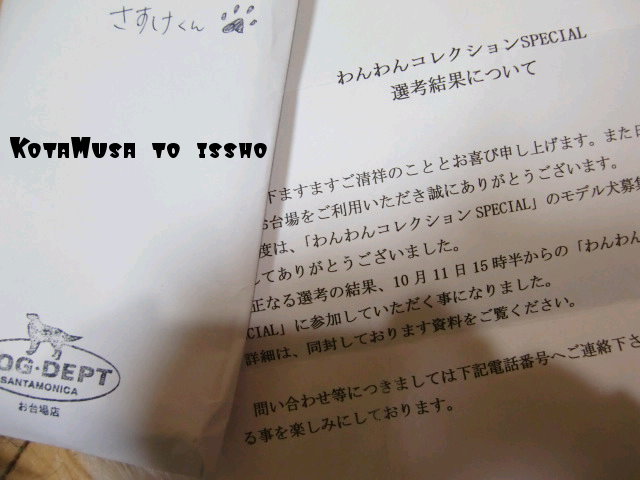 さすけくん
KOTAMUSA TO ISSHO
OG·DEPT
SANTAMONICA
お台場店
わんわんコレクションSPECIAL
選考結果について
下ますますご清祥のこととお喜び申し上げます。また日
お台場をご利用いただき誠にありがとうございます。
度は、「わんわんコレクション SPECIAL」のモデル犬募集
してありがとうございました。
正なる選考の結果、10月11日15時半からの「わんわん
CIAL」に参加していただく事になりました。
詳細は、同封しております資料をご覧ください。
問い合わせ等につきましては下記電話番号へご連絡下さ
る事を楽しみにしております。